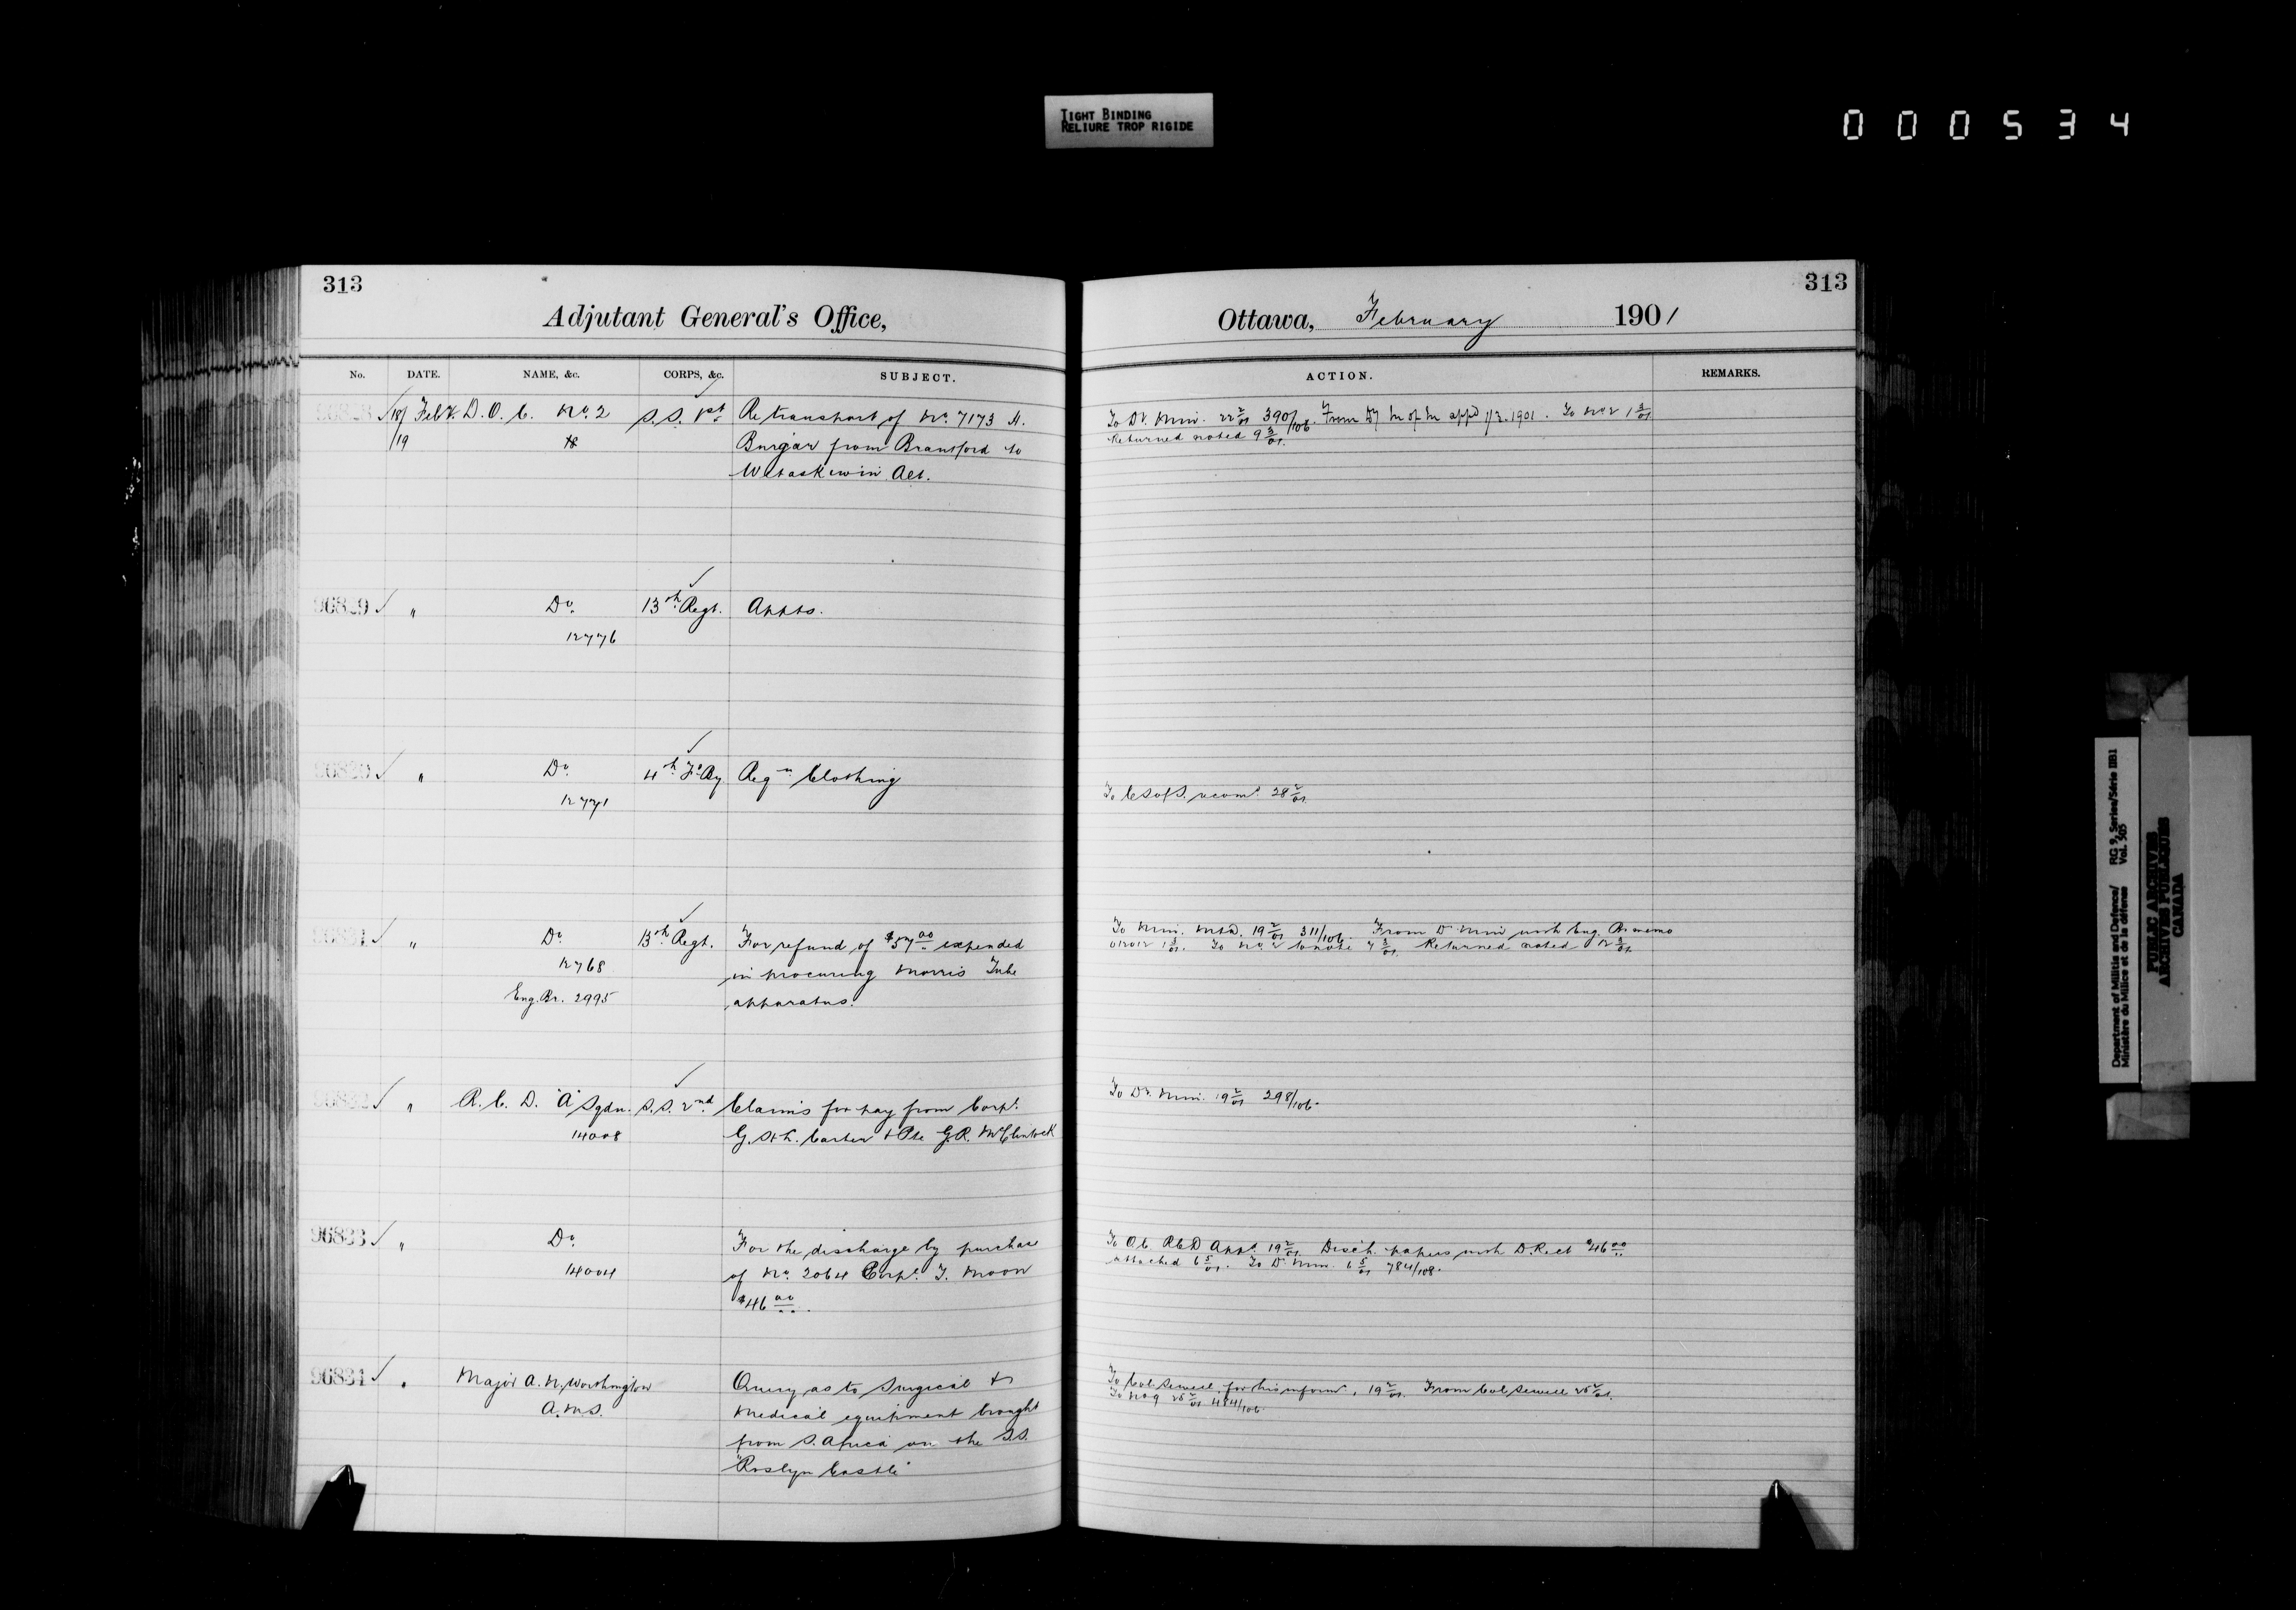 TIGHT BINDING
RELIURE TROP RIGIDE
000534
313
Adjutant General's Office,
No. DATE. NAME, &c. CORPS, &c. SUBJECT.
96828 18/19 Feby. D.O.C. No. 2 S.S. 1st Re transport of No. 7173 H.
18 Burgar from Brantford to
Wetaskewin Alt.
96829 " Do. 13th Regt. Appts.
12776
96830 " Do. 4th Fd. By Reqn. Clothing
12771
96831 " Do. 13th Regt. For refund of $57.00 expended
12768 in procuring Morris Tube
Eng. Br. 2995 apparatus.
96832 " R.C.D. "A" Sqdn. S.S. 2nd. Claims for pay from Corpl.
14008 G. St. L. Carter & Pte G.R. McClintock
96833 " Do. For the discharge by purchase
14004 of No. 2064 Corpl. T. Moon
$46.00.
96834 " Major A.N. Worthington Query as to Surgical &
A.M.S. Medical equipment brought
from S. Africa on the S.S.
"Roslyn Castle"
313
Ottawa, February 1901
ACTION. REMARKS.
To Dy. Min. 22 2/01 390/106. From Dy M of M appd 1/3.1901. To No 2 1 3/01
Returned noted 9 3/01.
To C S of S. recomd. 28 2/01
To Min. 19 2/01 311/106. From D. Min with Eng. Br memo
1 3/01. To No. 2 to note 7 3/01. Returned noted 12 3/01
To Dy. Min. 19 2/01 298/106.
To O.C. RCD Appd. 19 2/01. Disch. papers with D. Rect $46.00
attached 6 5/01. To D. Min. 6 5/01 784/108.
To Col. Sewell for his informn., 19 2/01. From Col. Sewell 25 2/01.
To No 9 25 2/01 484/106.
Department of Militia and Defence/ RG 9, Series/Série IIB1
Ministère du Milice et de la défense Vol. 505
PUBLIC ARCHIVES
ARCHIVES PUBLIQUES
CANADA